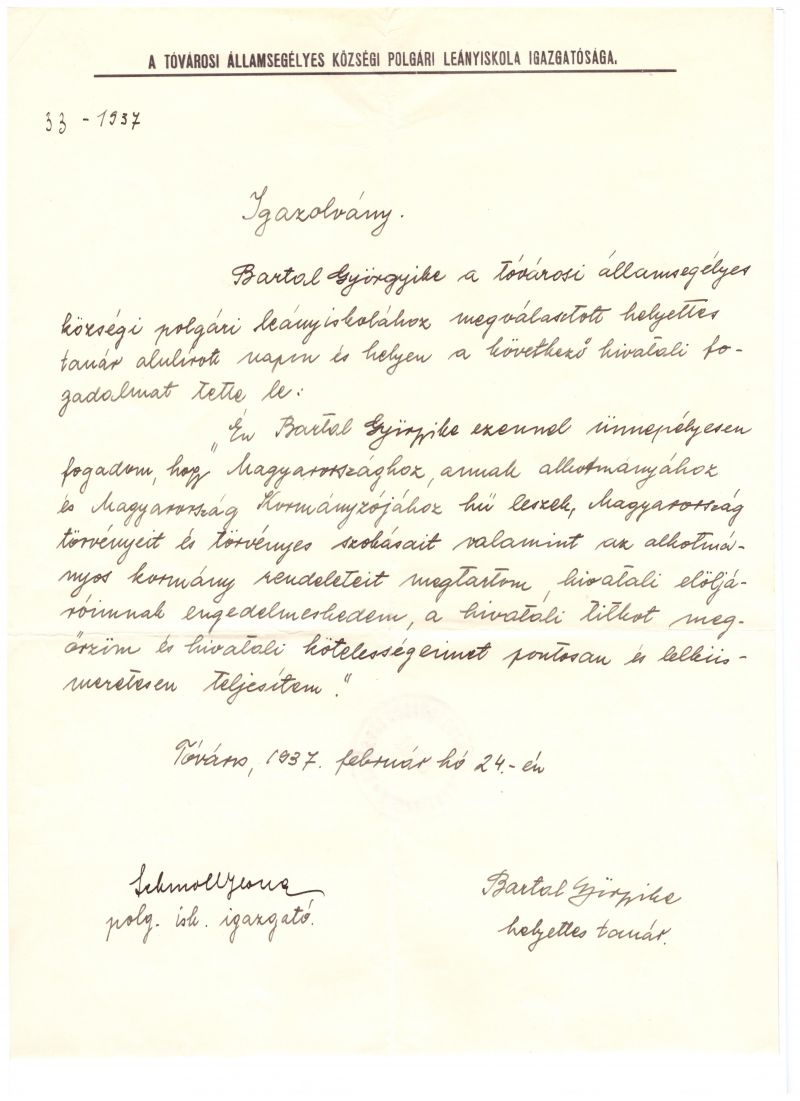 A TÓVÁROSI ÁLLAMSEGÉLYES KÖZSÉGI POLGÁRI LEÁNYISKOLA IGAZGATÓSÁGA.
33 - 1937
Igazolvány.
Bartal Györgyike a tóvárosi államsegélyes
községi polgári leányiskolához megválasztott helyettes
tanár alulírott napon és helyen a következő hivatali fo-
gadalmat tette le:
„Én Bartal Györgyike ezennel ünnepélyesen
fogadom, hogy Magyarországhoz, annak alkotmányához
és Magyarország Kormányzójához hű leszek, Magyarország
törvényeit és törvényes szokásait valamint az alkotmá-
nyos kormány rendeleteit megtartom, hivatali elöljá-
róimnak engedelmeskedem, a hivatali titkot meg-
őrzöm és hivatali kötelességeimet pontosan és lelkiis-
meretesen teljesítem."
Tóváros, 1937. február hó 24.-én
Schmoll Ilona
polg. isk. igazgató.
Bartal Györgyike
helyettes tanár.